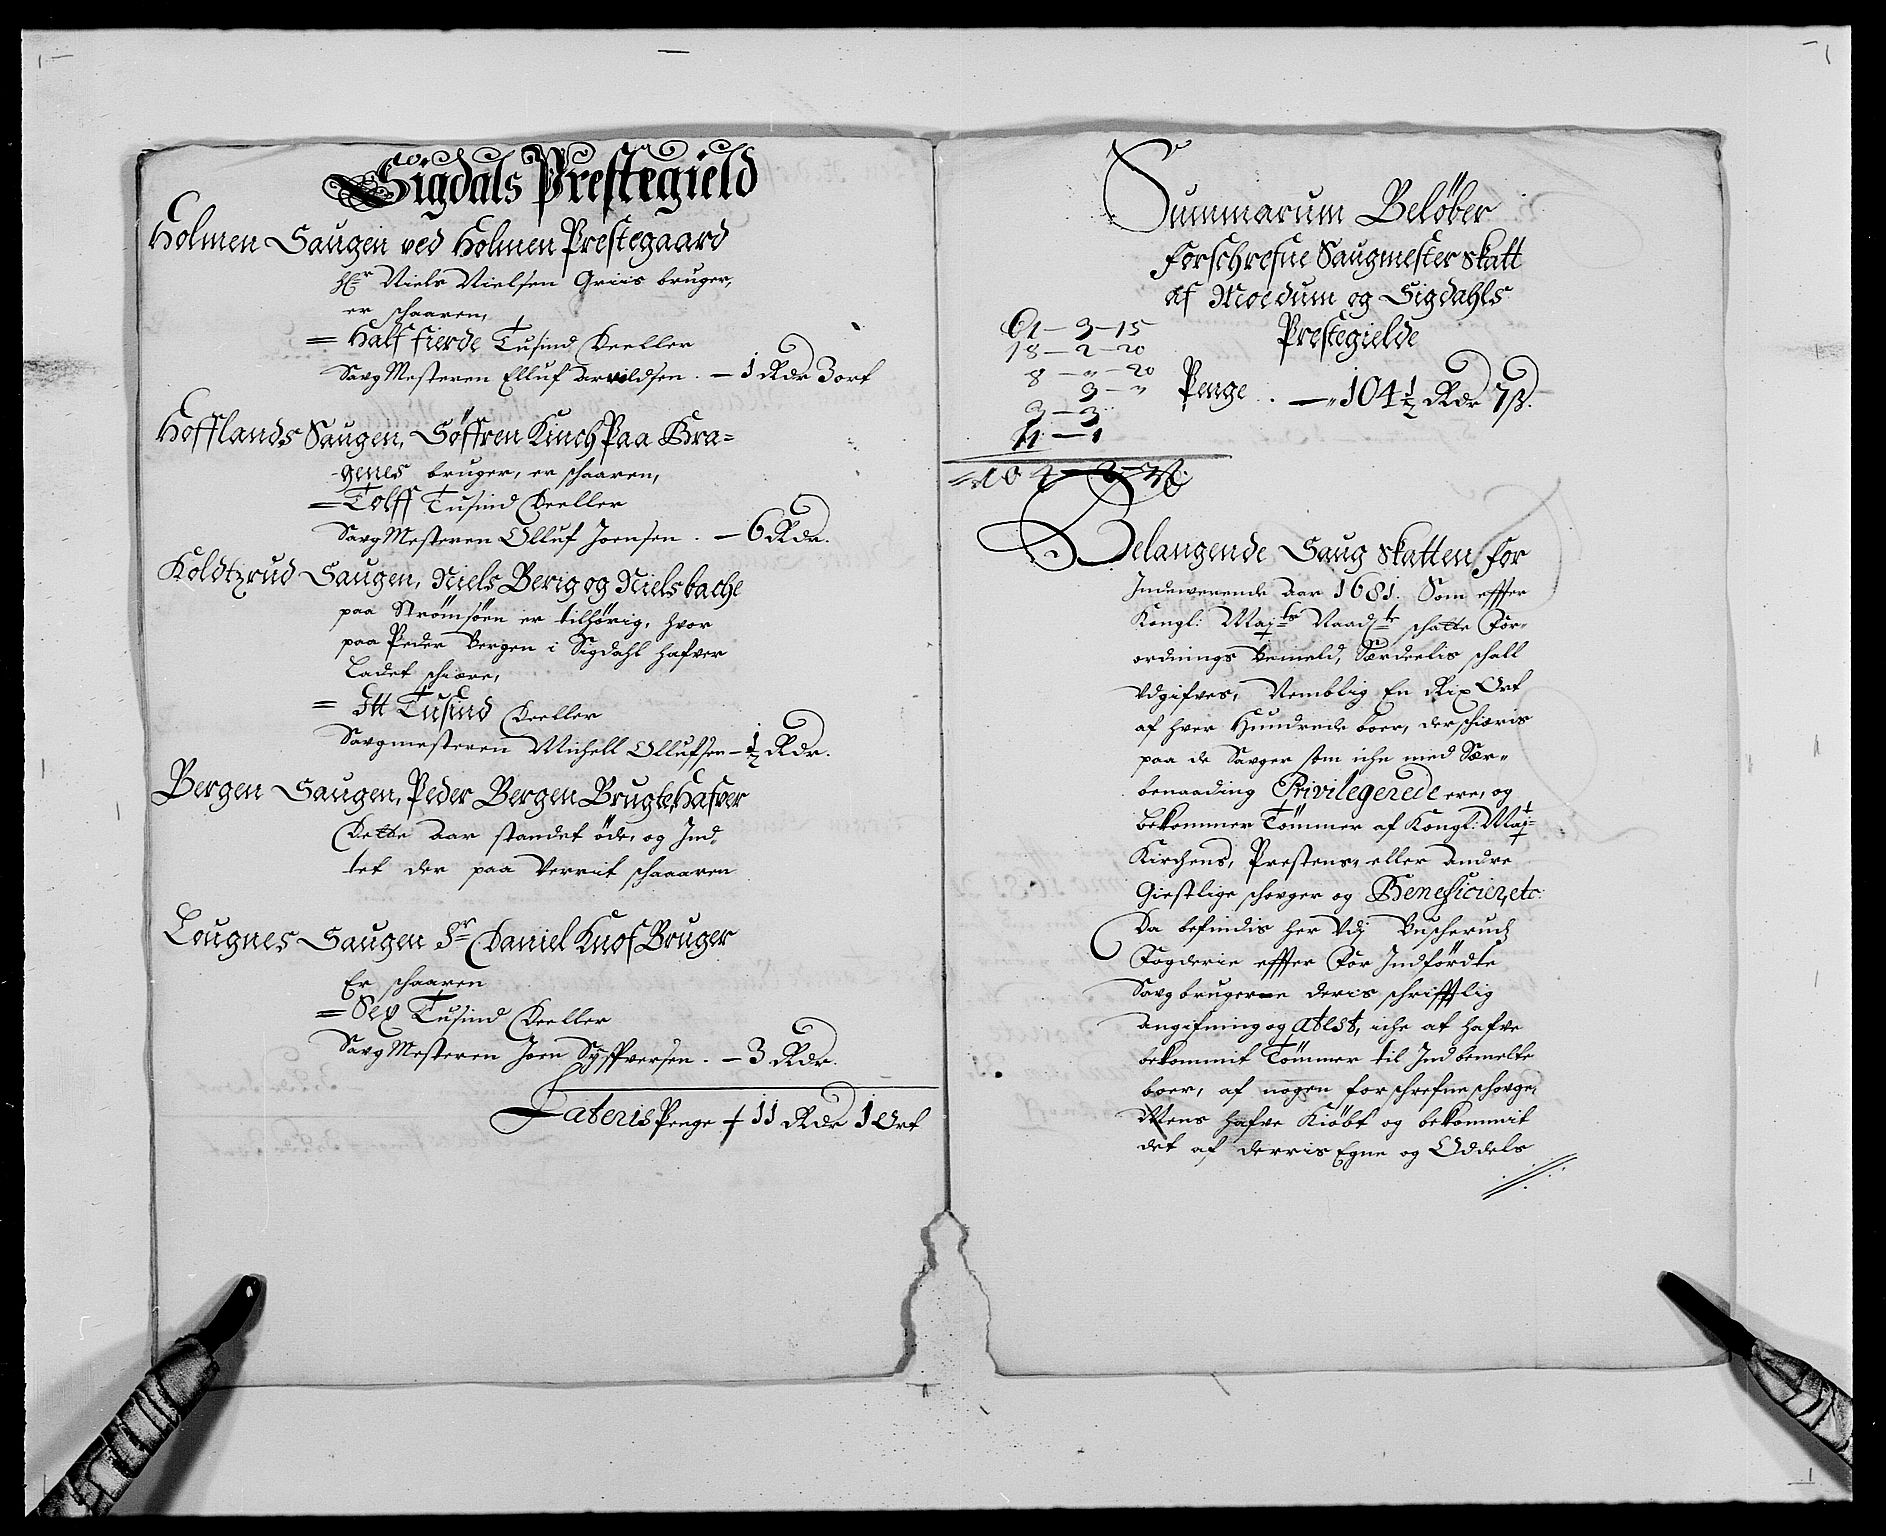 Sigdals Prestegield
Holmen Saugen ved Holmen Prestegaard
Hr Niels Nielsen Griis bruger,
er schaaren,
= Half fierde Tusind Deeller
SaugMesteren Elluf Darvildsen. — 1 Rdr 3 ort
Hofflands Saugen, Söffren Kinch Paa Bra=
genes bruger, er schaaren,
= Tolff Tusind Deeller
SaugMesteren Olluf Joensen. — 6 Rdr.
Koldtzrud Saugen, Niels Berig og Niels bache
paa Strömsöen er tilhörig, hvor
paa Peder Bergen i Sigdahl hafver
Ladet schiære,
= Itt Tusind Deeller
Saugmesteren Michell Ollufsen — ½ Rdr.
Bergen Saugen, Peder Bergen Brugte, Hafver
Dette Aar standet öde, og Ind,
tet der paa Verrit schaaaren
Lougnes Saugen Sr Daniel Knof Bruger
Er schaaren
= Sex Tusind Deeller
SaugMesteren Joen Syffversen. — 3 Rdr.
Lateris Penge + 11 Rdr 1 Ort
Summarum Belöber
forschrefne Saugmester skatt
af Moedum og Sigdahls
Prestegielde
Penge . — 104½ Rdr 7 ß.
61 — 3 — 15
18 — 2 — 20
8 — " — 20
3 — "
3 — 3
11 — 1
Belangende Saug skatten for
Indeværende Aar 1681. Som effter
Kongl: Mayts Naadts schatte For=
ordnings Bemeld, Særdeelis schall
Udgifves, Nemblig En Rix Ort
af hver Hundrede boer, der schæris
paa de Sauger som iche med Sær=
benaading Privilegerede ere, og
bekommer Tömmer af Kongl: Mayt
Kirchens, Prestens, eller andre
Giestlige schovger og Beneficier, etc:
Da befindis her Udj Buscheruds
Fogderie effter For Indfördte
Saugbrugerne deris schrifftlig
angifning og atest, iche at hafve
bekommit Tömmer til Indbemelte
boer, af nogen forschrefne schovge,
Mens hafve Kiöbt og bekommit
det af derris Egne og Oddels